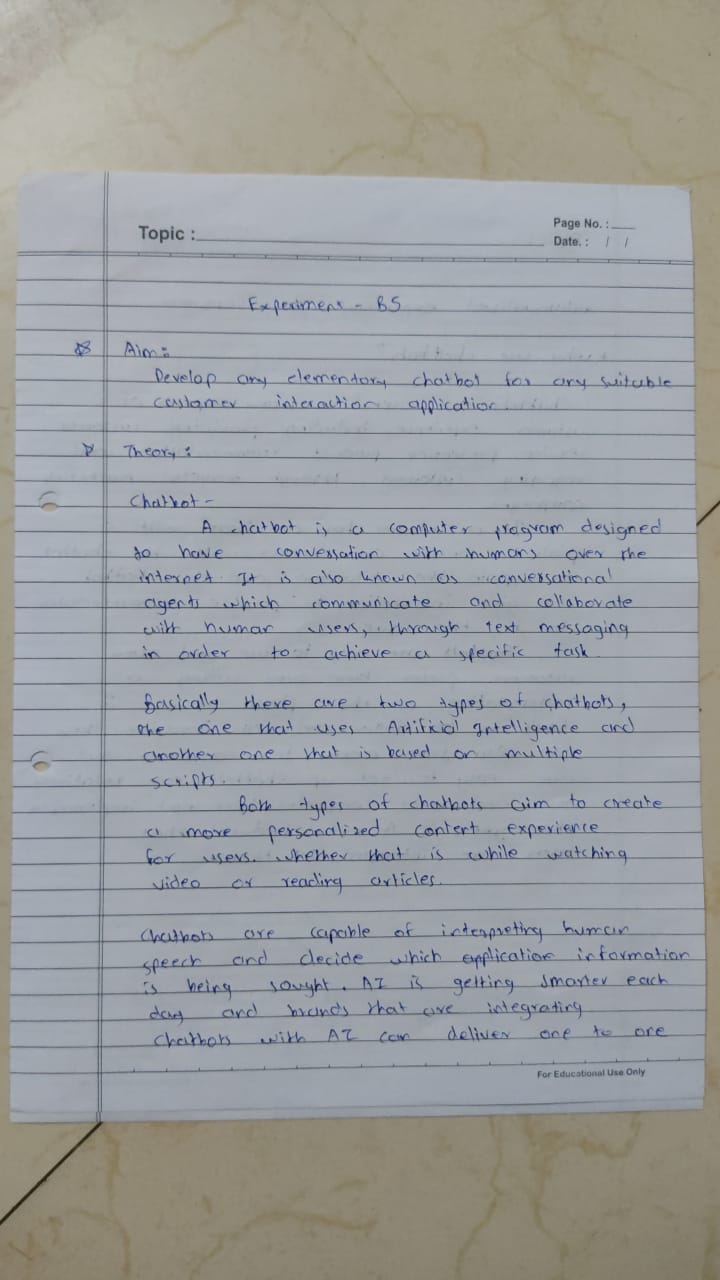 Topic :
Page No. :
Date. : / /
Experiment - B5
Aim :
Develop any elementory chatbot for any suitable
customer interaction application
Theory :
Chatbot -
A chatbot is a computer program designed
to have conversation with humans over the
internet. It is also known as conversational
agents which communicate and collaborate
with human users, through text messaging
in order to achieve a specific task.
Basically there are two types of chatbots,
the one that uses Artificial Intelligence and
another one that is based on multiple
scripts.
Both types of chatbots aim to create
a more personalized content experience
for users. whether that is while watching
video or reading articles.
Chatbots are capable of interpreting human
speech and decide which application information
is being sought. AI is getting smarter each
day and brands that are integrating
Chatbots with AI can deliver one to one
For Educational Use Only